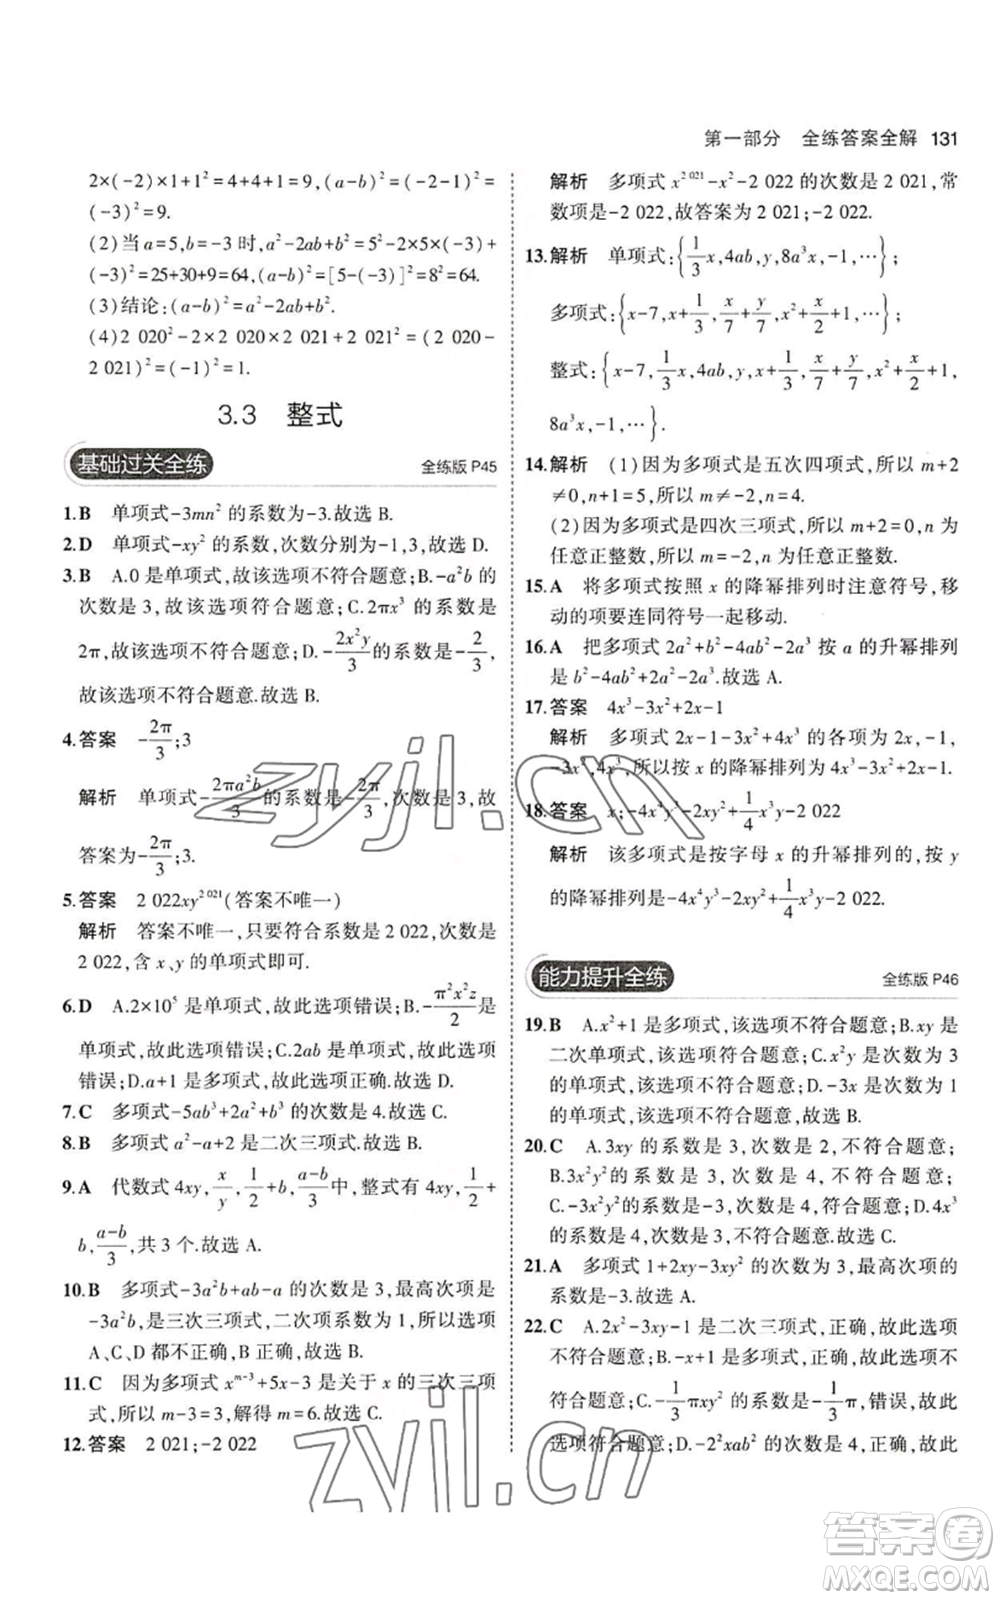 第一部分 全练答案全解 131
2×(-2)×1+1²=4+4+1=9,(a-b)²=(-2-1)²=
(-3)²=9.
(2)当 a=5,b=-3 时,a²-2ab+b²=5²-2×5×(-3)+
(-3)²=25+30+9=64,(a-b)²=[5-(-3)]²=8²=64.
(3)结论:(a-b)²=a²-2ab+b².
(4)2 020²-2×2 020×2 021+2 021²=(2 020-
2 021)²=(-1)²=1.
3.3 整式
基础过关全练 全练版 P45
1.B 单项式-3mn² 的系数为-3.故选 B.
2.D 单项式-xy² 的系数,次数分别为-1,3,故选 D.
3.B A.0 是单项式,故该选项不符合题意;B.-a²b 的
次数是 3,故该选项符合题意;C.2πx³ 的系数是
2π,故该选项不符合题意;D.-2x²y/3的系数是-2/3,
故该选项不符合题意.故选 B.
4.答案 -2π/3;3
解析 单项式-2πa²b/3的系数是-2π/3,次数是 3,故
答案为-2π/3;3.
5.答案 2 022xy²⁰²¹(答案不唯一)
解析 答案不唯一,只要符合系数是 2 022,次数是
2 022,含 x、y 的单项式即可.
6.D A.2×10⁵ 是单项式,故此选项错误;B.-π²x²z/2是
单项式,故此选项错误;C.2ab 是单项式,故此选项
错误;D.a+1 是多项式,故此选项正确.故选 D.
7.C 多项式-5ab³+2a²+b³ 的次数是 4.故选 C.
8.B 多项式 a²-a+2 是二次三项式.故选 B.
9.A 代数式 4xy,x/y,1/2+b,a-b/3中,整式有 4xy,1/2+
b,a-b/3,共 3 个.故选 A.
10.B 多项式-3a²b+ab-a 的次数是 3,最高次项是
-3a²b,是三次三项式,二次项系数是 1,所以选项
A、C、D 都不正确,B 正确.故选 B.
11.C 因为多项式 xᵐ⁻³+5x-3 是关于 x 的三次三项
式,所以 m-3=3,解得 m=6.故选 C.
12.答案 2 021;-2 022
解析 多项式 x²⁰²¹-x²-2 022 的次数是 2 021,常
数项是-2 022,故答案为 2 021;-2 022.
13.解析 单项式:{1/3x,4ab,y,8a³x,-1,…};
多项式:{x-7,x+1/3,x/7+y/7,x²+x/2+1,…};
整式:{x-7,1/3x,4ab,y,x+1/3,x/7+y/7,x²+x/2+1,
8a³x,-1,…}.
14.解析 (1)因为多项式是五次四项式,所以 m+2
≠0,n+1=5,所以 m≠-2,n=4.
(2)因为多项式是四次三项式,所以 m+2=0,n 为
任意正整数,所以 m=-2,n 为任意正整数.
15.A 将多项式按照 x 的降幂排列时注意符号,移
动的项要连同符号一起移动.
16.A 把多项式 2a²+b²-4ab²-2a³ 按 a 的升幂排列
是 b²-4ab²+2a²-2a³.故选 A.
17.答案 4x³-3x²+2x-1
解析 多项式 2x-1-3x²+4x³ 的各项为 2x,-1,
-3x²,4x³,所以按 x 的降幂排列为 4x³-3x²+2x-1.
18.答案 x;-4x⁴y³-2xy²+1/4x³y-2 022
解析 该多项式是按字母 x 的升幂排列的,按 y
的降幂排列是-4x⁴y³-2xy²+1/4x³y-2 022.
能力提升全练 全练版 P46
19.B A.x²+1 是多项式,该选项不符合题意;B.xy 是
二次单项式,该选项符合题意;C.x²y 是次数为 3
的单项式,该选项不符合题意;D.-3x 是次数为 1
的单项式,该选项不符合题意,故选 B.
20.C A.3xy 的系数是 3,次数是 2,不符合题意;
B.3x²y² 的系数是 3,次数是 4,不符合题意;
C.-3x²y²的系数是-3,次数是 4,符合题意;D.4x³
的系数是 4,次数是 3,不符合题意.故选 C.
21.A 多项式 1+2xy-3xy² 的次数为 3,最高次项系数
是-3.故选 A.
22.C A.2x²-3xy-1 是二次三项式,正确,故此选项
不符合题意;B.-x+1 是多项式,正确,故此选项不
符合题意;C.-1/3πxy² 的系数是-1/3π,错误,故此
选项符合题意;D.-2²xab² 的次数是 4,正确,故此
zyjl.cn
zyjl.cn
答案圈
MXQE.COM